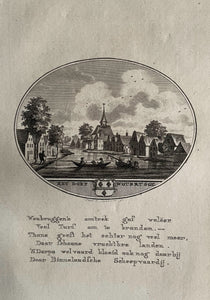 HET DORP WOUBRUGGE
Woubruggens omtrek gaf weleer
Veel Turf om te branden.—
Thans geeft het echter nog veel meer,
Door schoone vruchtbre landen.
'S Dorps welvaard bloeid ook nog daarbij
Door Binnelandsche Scheepvaardij.